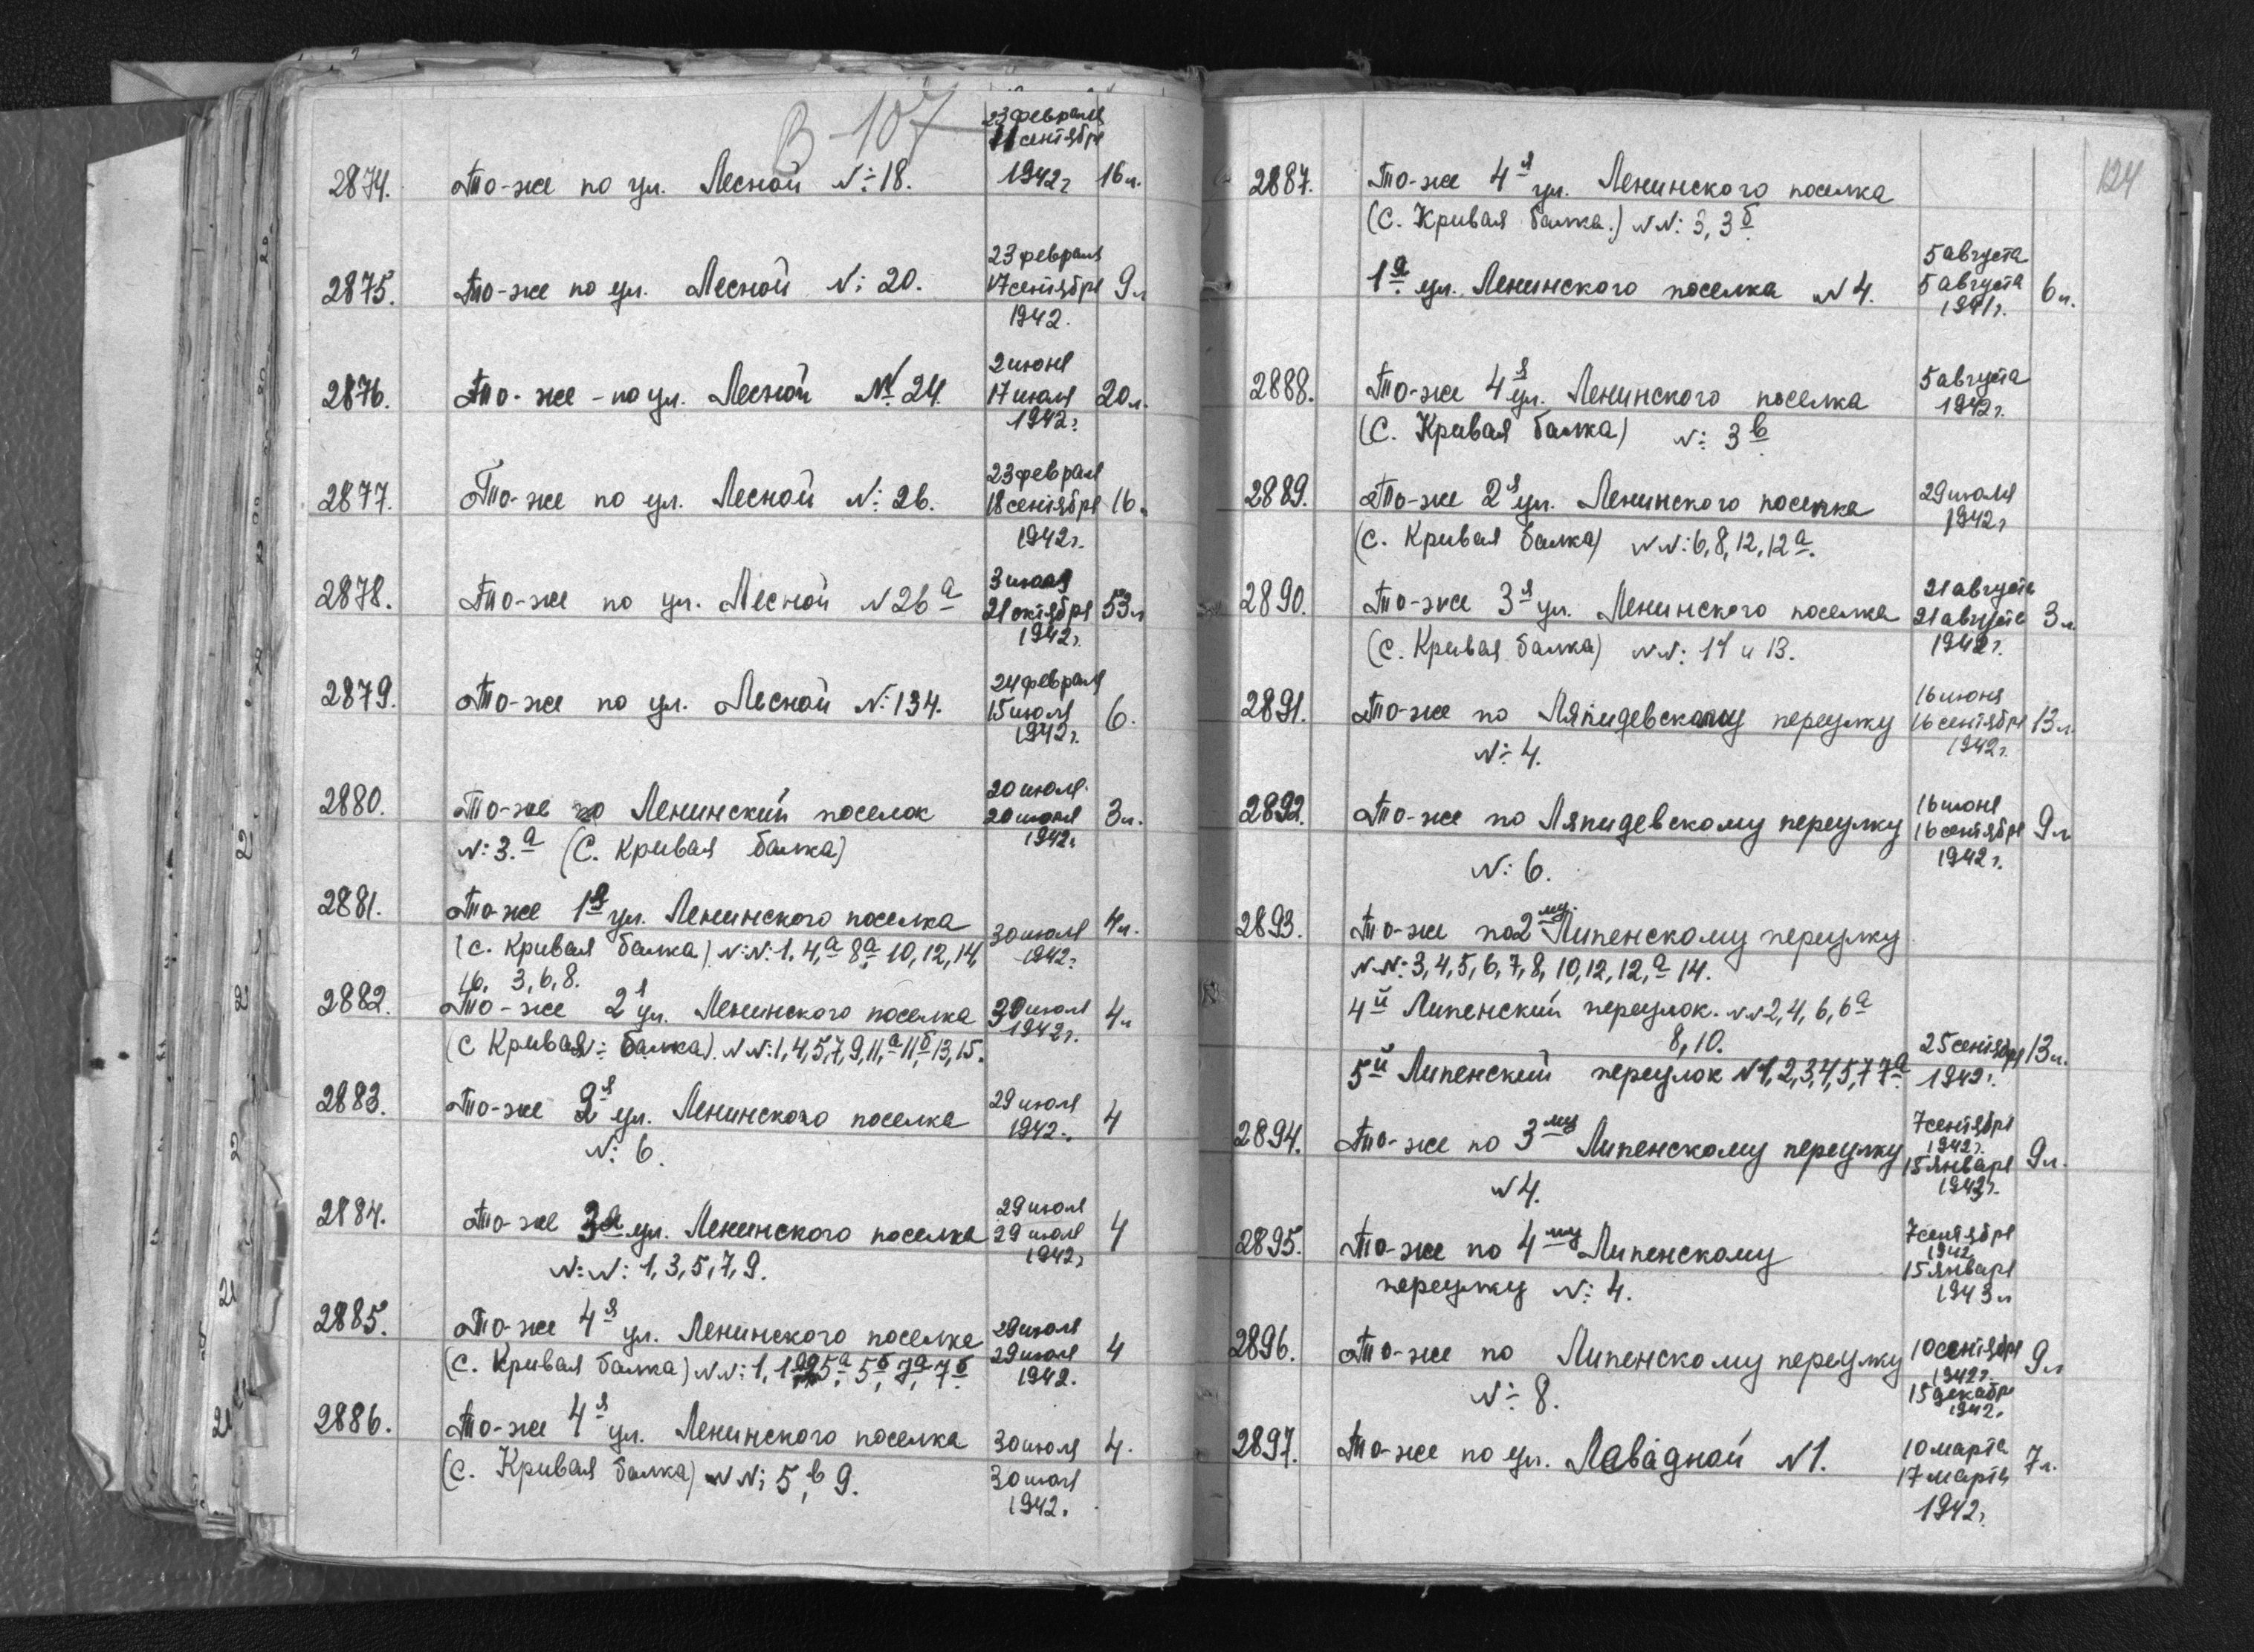 В-107
23 февраля
11 сентября
2874. То-же по ул. Лесной №: 18. 1942 г 16 л.
23 февраля
2875. То-же по ул. Лесной №: 20. 17 сентября 9 л
1942.
2 июня
2876. То-же - по ул. Лесной № 24. 17 июля 20 л.
1942 г.
23 февраля
2877. То-же по ул. Лесной №: 26. 18 сентября 16 л
1942 г.
2878. То-же по ул. Лесной № 26 а 21 октября 53 л
1942 г.
24 февраля
2879. То-же по ул. Лесной №: 134. 15 июля 6.
1942 г.
20 июля
2880. То-же по Ленинский поселок 20 июля 3 л.
№: 3.а (С. Кривая балка) 1942 г
2881. То-же 1я ул. Ленинского поселка 4 л.
(С. Кривая балка) №№: 1, 4,а 8а, 10, 12, 14, 30 июля
16. 3, 6, 8. 1942 г
2882. То-же 2я ул. Ленинского поселка 30 июля 4 л
(С Кривая балка). №№: 1, 4, 5, 7, 9, 11,а 11б, 13, 15. 1942 г.
2883. То-же 2я ул. Ленинского поселка 29 июля 4
№: 6. 1942 г.
29 июля
2884. То-же 3я ул. Ленинского поселка 29 июля 4
№:№: 1, 3, 5, 7, 9. 1942 г
2885. То-же 4я ул. Ленинского поселка 29 июля
(С. Кривая балка) №№: 1, 5а, 5б, 7а, 7б. 29 июля 4
1942.
2886. То-же 4я ул. Ленинского поселка 30 июля 4.
(С. Кривая балка) №№: 5,в 9. 30 июля
1942 г.
124
2887. То-же 4я ул. Ленинского поселка
(С. Кривая балка.) №№: 3, 3б.
5 августа
1а. ул. Ленинского поселка № 4. 5 августа 6 л.
1941 г.
2888. То-же 4я ул. Ленинского поселка 5 августа
(С. Кривая балка) №: 3в 1942 г.
2889. То-же 2я ул. Ленинского поселка 29 июля
(С. Кривая балка) №№: 6, 8, 12, 12а. 1942 г
21 августа
2890. То-же 3я ул. Ленинского поселка 21 августа 3 л.
(С. Кривая балка) №№: 11 и 13. 1942 г.
16 июня
2891. То-же по Ляпидевскому переулку 16 сентября 13 л.
№: 4. 1942 г.
16 июня
2892. То-же по Ляпидевскому переулку 16 сентября 9 л
№: 6. 1942 г.
2893. То-же по 2му Липенскому переулку
№№: 3, 4, 5, 6, 7, 8, 10, 12, 12,а 14.
4й Липенский переулок. №№ 2, 4, 6, 6а
8, 10. 25 сентября 13 л.
5й Липенский переулок № 1, 2, 3, 4, 5, 7 7а. 1942 г.
7 сентября
2894. То-же по 3му Липенскому переулку 1942 г. 9 л.
15 января
№ 4. 1943 г.
7 сентября
2895. То-же по 4му Липенскому 1942
15 января
переулку №: 4. 1943 г
2896. То-же по Липенскому переулку 10 сентября 9 л
1942 г.
№: 8. 15 декабря
1942.
2897. То-же по ул. Левадной № 1. 10 марта 7 л.
17 марта
1942 г.